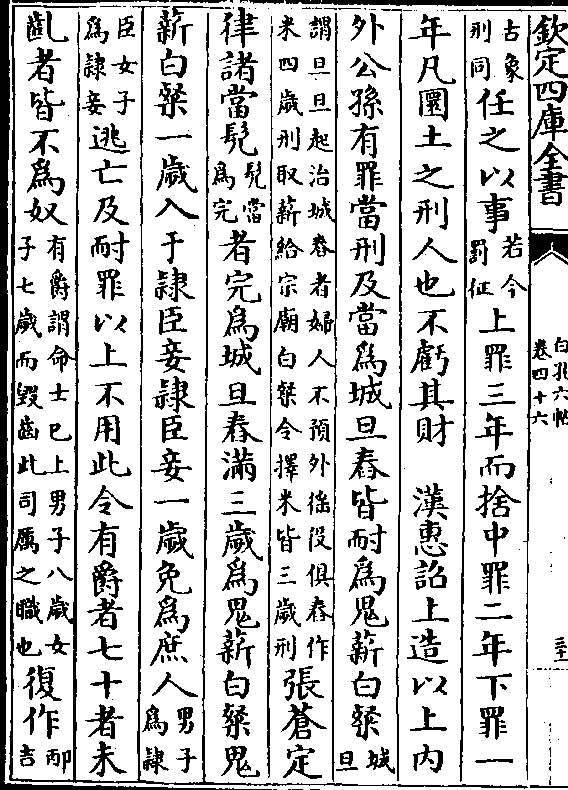 欽定四庫全書
白孔六帖
卷四十六
古象
刑同
任之以事
若今
罰征
上罪三年而捨中罪二年下罪一
年凡圜土之刑人也不虧其財　漢惠詔上造以上内
外公孫有罪當刑及當為城旦舂皆耐為鬼薪白粲
城
旦
謂旦旦起治城舂者婦人不預外徭役俱舂作
米四歲刑取薪給宗廟白粲令擇米皆三歲刑
張蒼定
律諸當髡
髡當
為完
者完為城旦舂滿三歲為鬼薪白粲鬼
薪白粲一歲入于隸臣妾隸臣妾一歲免為庶人
男子
為隸
臣女子
為隸妾
逃亡及耐罪以上不用此令有爵者七十者未
齓者皆不為奴
有爵謂命士已上男子八歲女
子七歲而毀齒此司厲之職也
復作
邴
吉